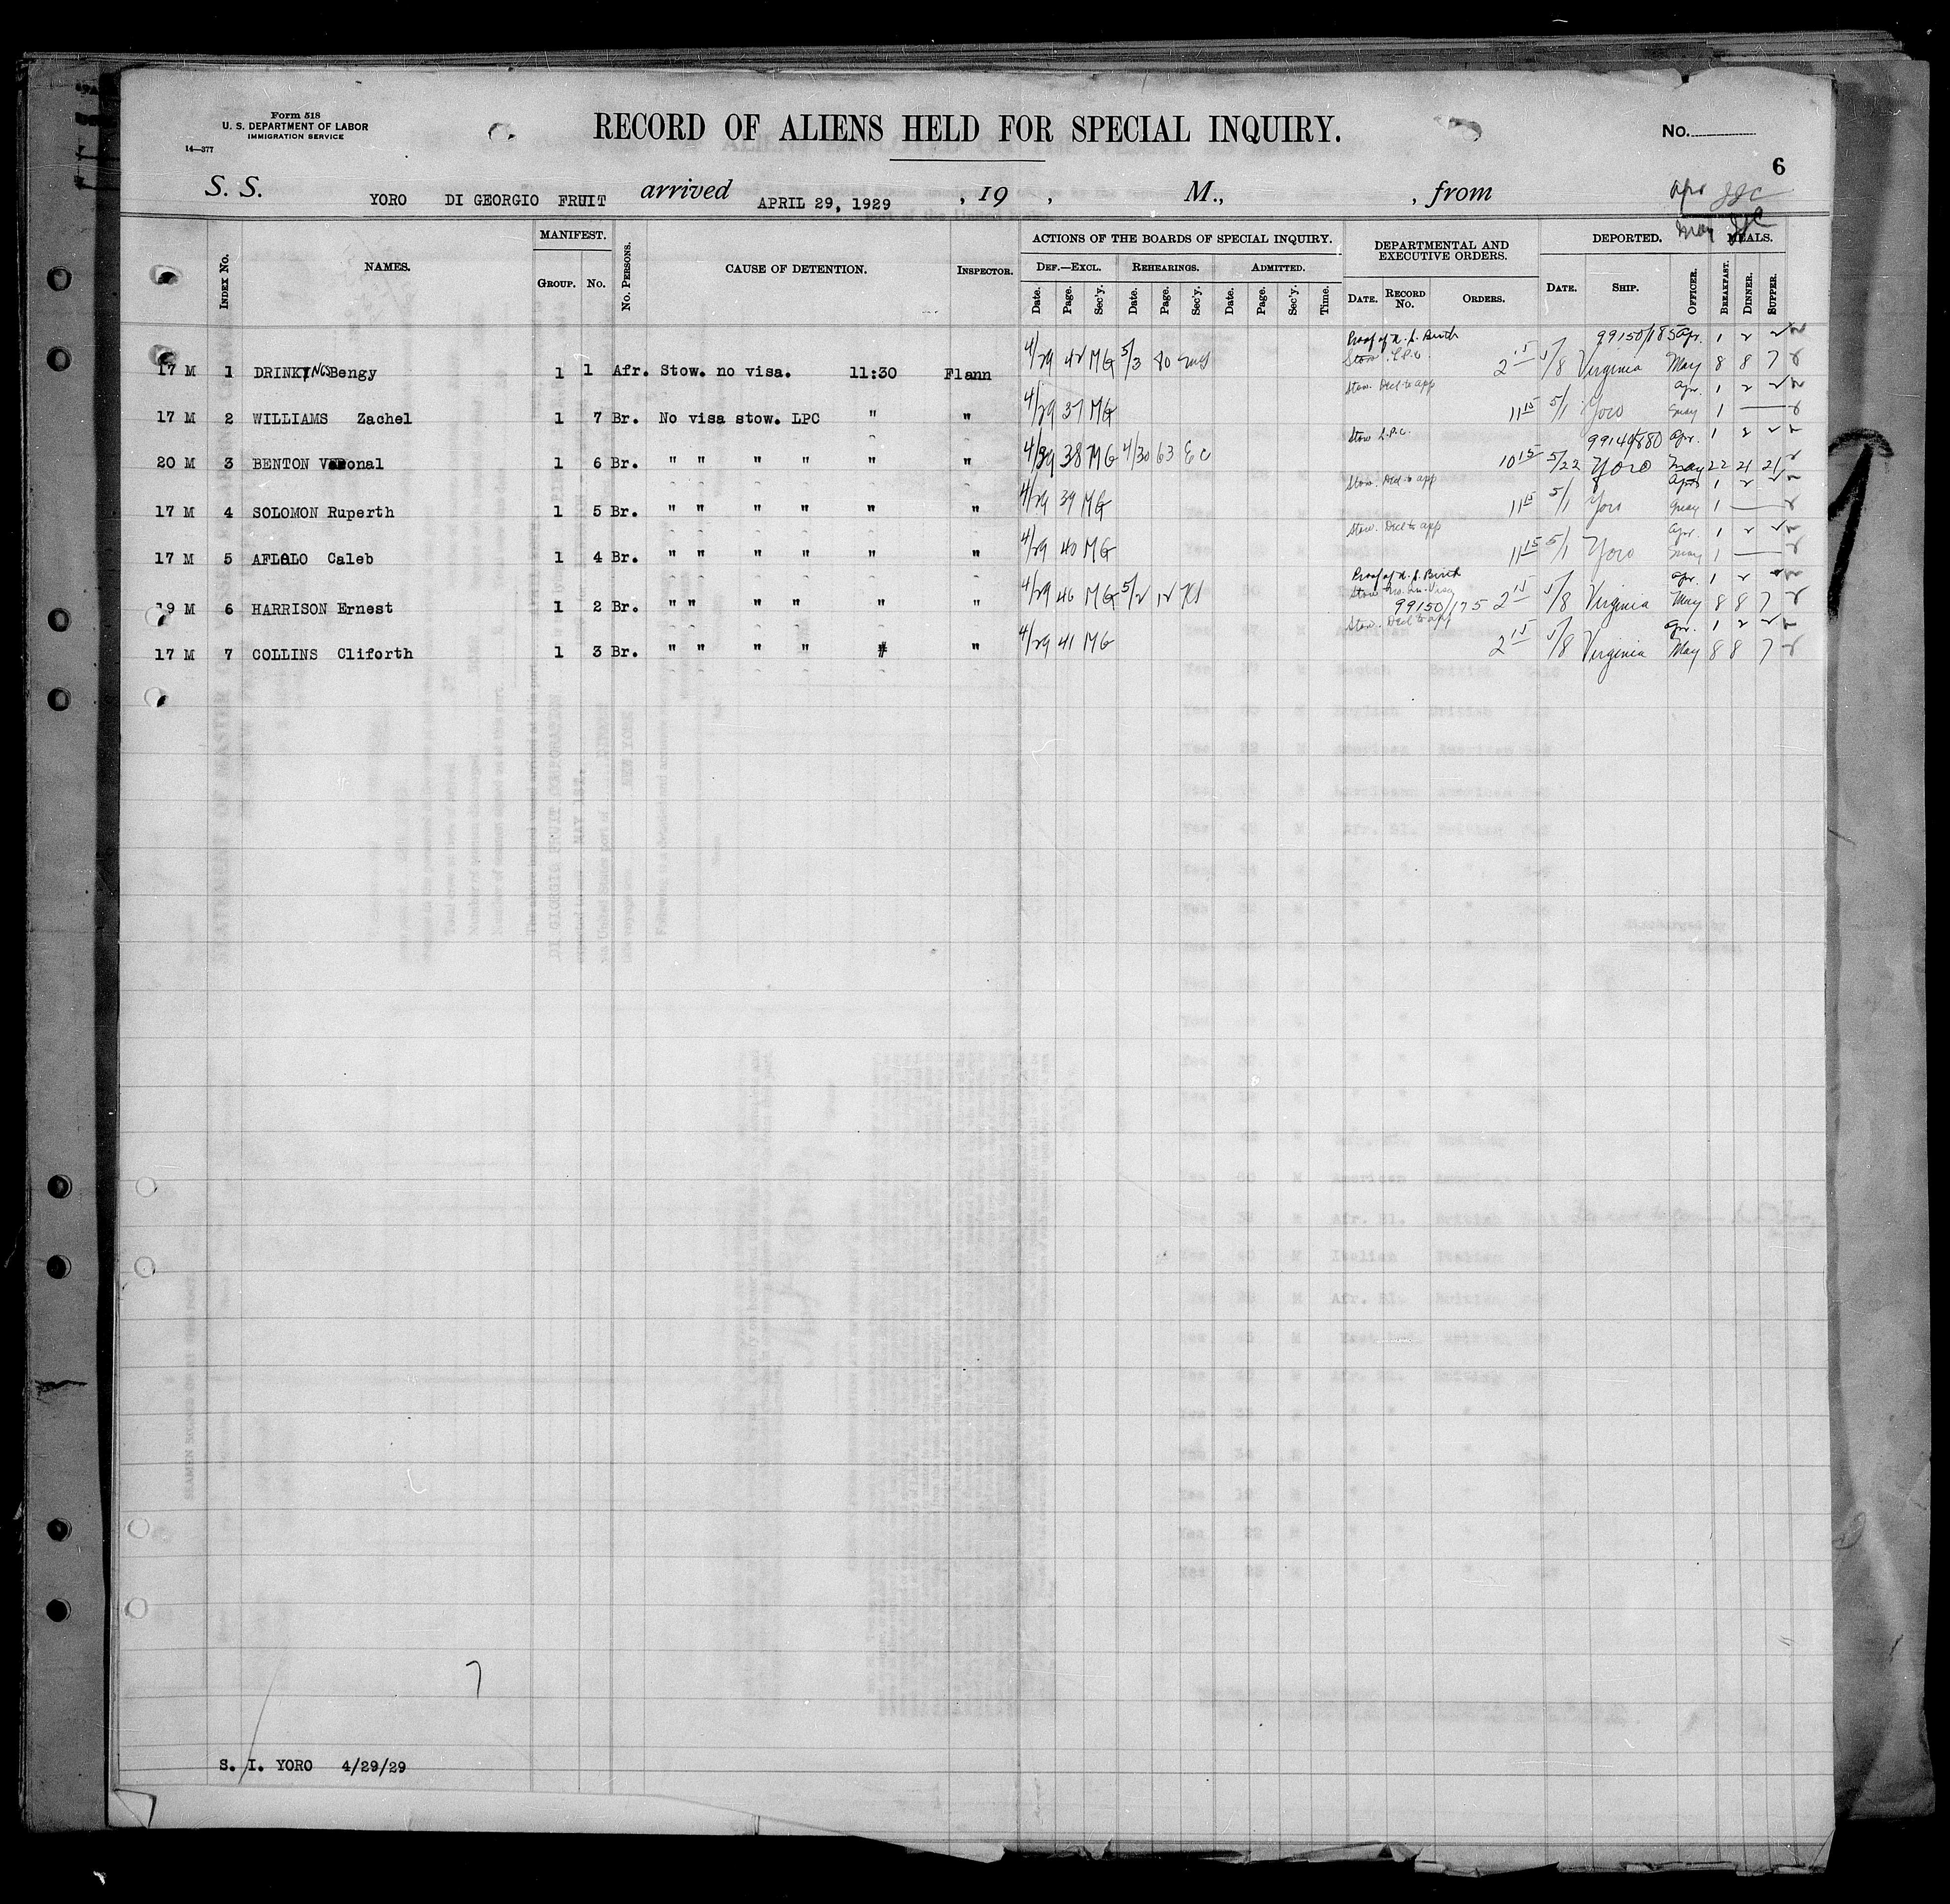 Form 518
U. S. DEPARTMENT OF LABOR
IMMIGRATION SERVICE
14—377
RECORD OF ALIENS HELD FOR SPECIAL INQUIRY.
No.
6
S. S. YORO DI GEORGIO FRUIT arrived APRIL 29, 1929 , 19 , M., , from
Apr JJC
May JJC
INDEX No. NAMES. MANIFEST. GROUP. No. No. PERSONS. CAUSE OF DETENTION. INSPECTOR. ACTIONS OF THE BOARDS OF SPECIAL INQUIRY. DEF.—EXCL. Date. Page. Sec'y. REHEARINGS. Date. Page. Sec'y. ADMITTED. Date. Page. Sec'y. Time. DEPARTMENTAL AND EXECUTIVE ORDERS. DATE. RECORD No. ORDERS. DEPORTED. DATE. SHIP. OFFICER. MEALS. BREAKFAST. DINNER. SUPPER.
Proof of U. S. Birth 99150/185 Apr. 1 2 2
17 M 1 DRINKINGS Bengy 1 1 Afr. Stow. no visa. 11:30 Flann 4/29 42 MG 5/3 80 Stow. L.P.C. 2 15 5/8 Virginia May 8 8 7
Stow. Decl to app Apr. 1 2 2
17 M 2 WILLIAMS Zachel 1 7 Br. No visa stow. LPC " " 4/29 37 MG 11 15 5/1 Yoro May 1
Stow L.P.C. 99140/880 Apr. 1 2 2
20 M 3 BENTON 1 6 Br. " " " " " " 4/29 38 MG 4/30 63 EC 10 15 5/22 Yoro May 22 21 21
Stow. Decl to app Apr 1 2 2
17 M 4 SOLOMON Ruperth 1 5 Br. " " " " " " 4/29 39 MG 11 15 5/1 Yoro May 1
Stow. Decl to app Apr. 1 2 2
17 M 5 AFLALO Caleb 1 4 Br. " " " " " " 4/29 40 MG 11 15 5/1 Yoro May 1
Proof of U. S. Birth Apr. 1 2
19 M 6 HARRISON Ernest 1 2 Br. " " " " " " 4/29 46 MG 5/2 12 Stow 99150/175 2 15 5/8 Virginia May 8 8 7
Stow. Decl to app Apr. 1 2 2
17 M 7 COLLINS Cliforth 1 3 Br. " " " " " " 4/29 41 MG 2 15 5/8 Virginia May 8 8 7
7
S. I. YORO 4/29/29